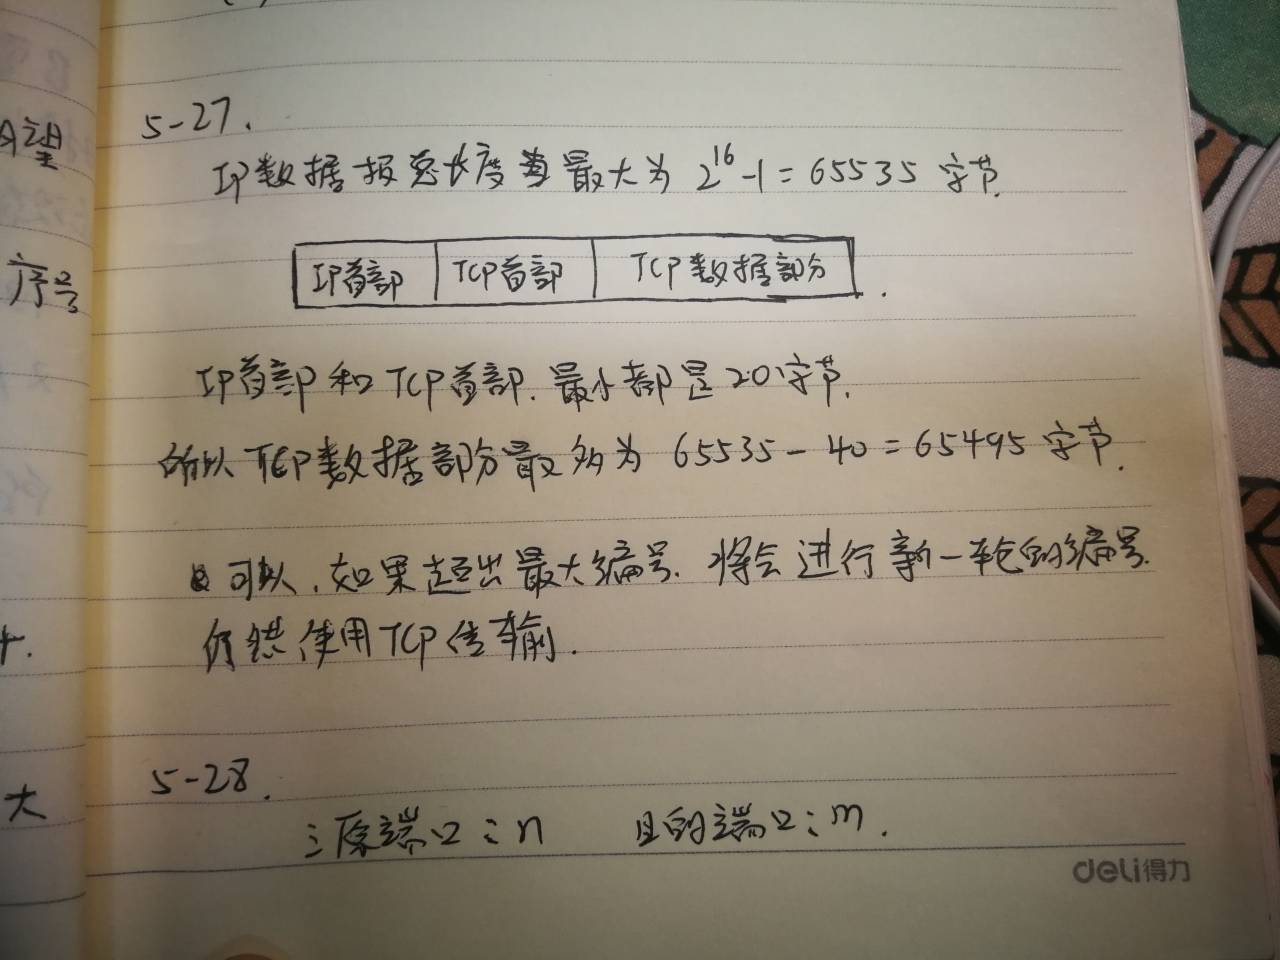 5-27.
IP数据报总长度 最大为 2^16-1=65535 字节.
IP首部 TCP首部 TCP数据部分.
IP首部和TCP首部.最小都是20字节.
所以TCP数据部分最多为 65535-40=65495 字节.
可以.如果超出最大编号.将会进行新一轮的编号.
仍然使用TCP传输.
5-28.
源端口:n 目的端口:m.
deli得力
望
序号
大